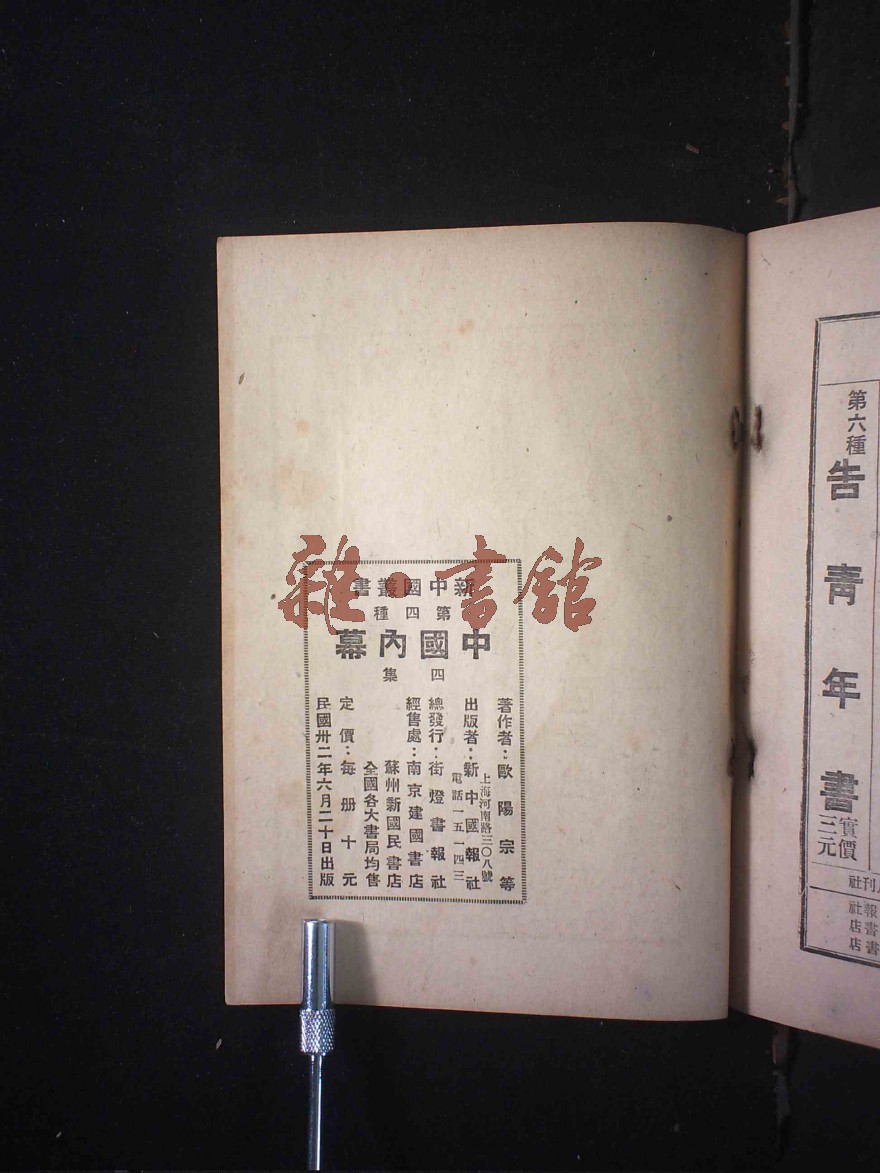 新中國叢書
第四種
中國內幕
四集
著作者：歐陽宗等
出版者：新中國報社
上海河南路三〇八號
電話一五一四三
總發行：街燈書報社
經售處：南京建國書店
蘇州新國民書店
全國各大書局均售
定價：每册十元
民國卅二年六月二十日出版
雜·書館
第六種
告青年書
實價三元
刊社
報社
書店
書店